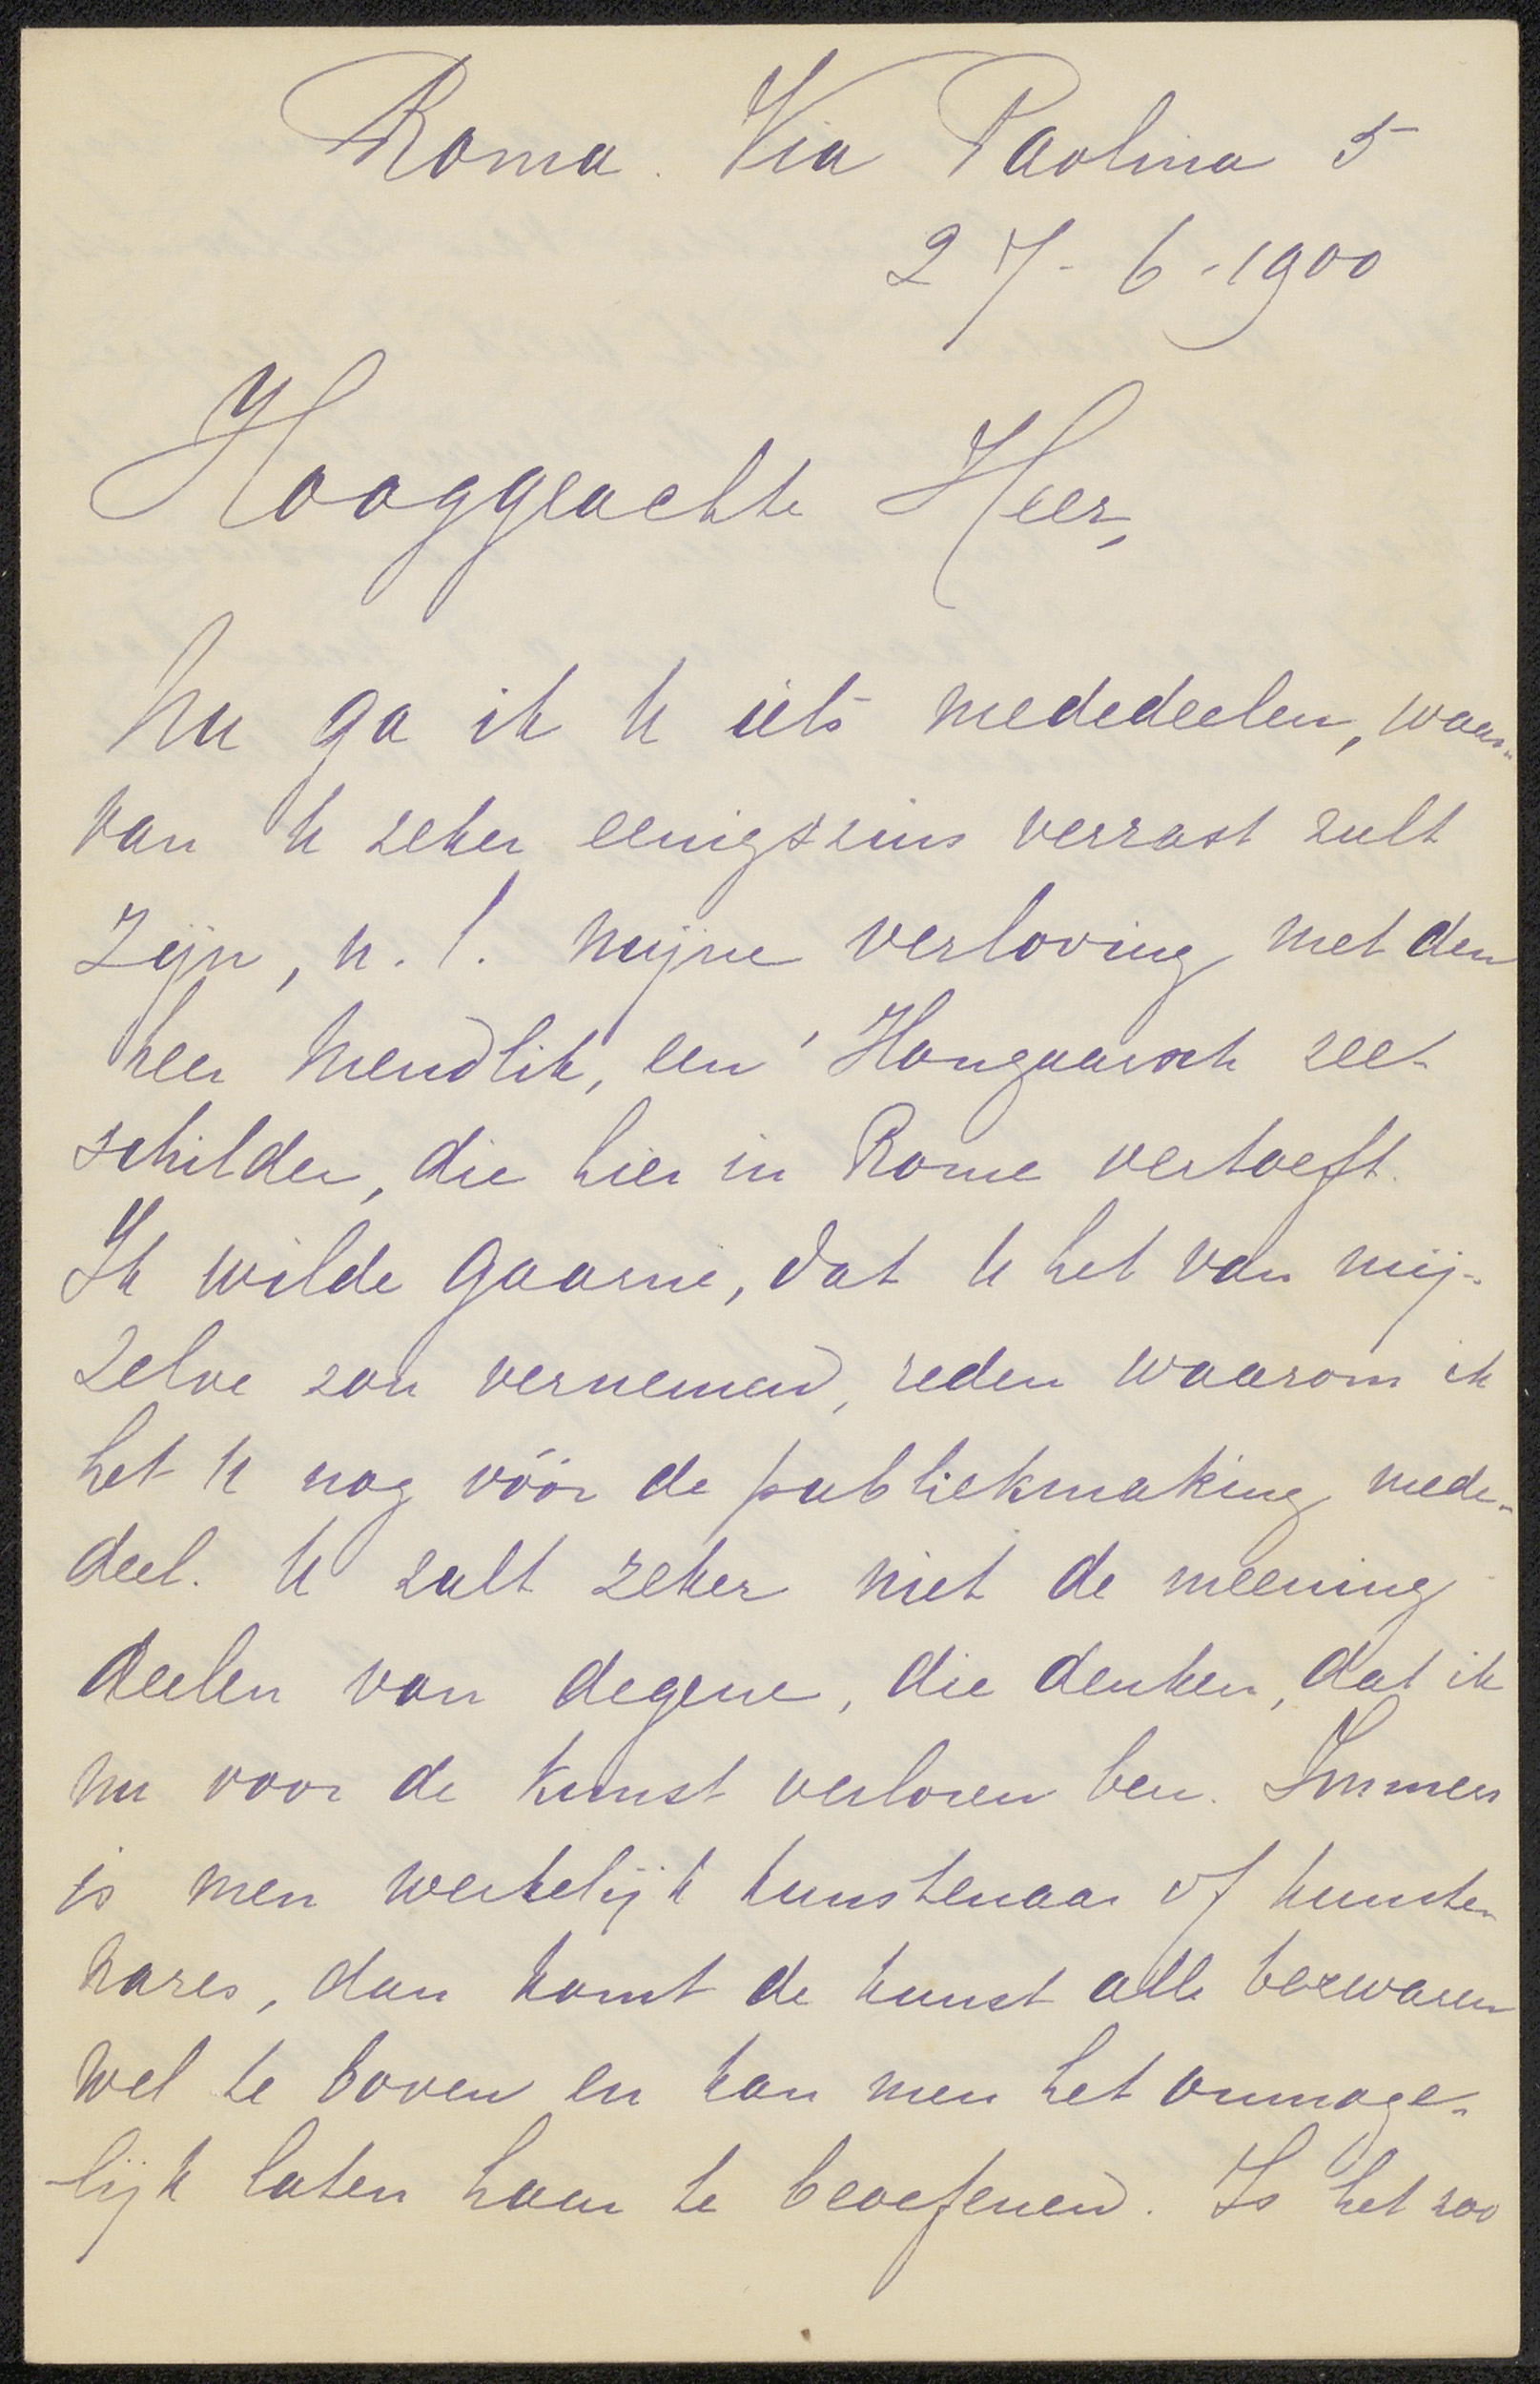 Roma. Via Paolina 5
27-6-1900
Hooggeachte Heer,
Nu ga ik U iets mededeelen, waar-
van U zeker eenigszins verrast zult
zijn, n.l. mijne verloving met den
heer Mendlik, een Hongaarsch zee-
schilder, die hier in Rome vertoeft.
Ik wilde gaarne, dat U het van mij-
zelve zou vernemen, reden waarom ik
het U nog vóór de publiekmaking mede-
deel. U zult zeker niet de meening
deelen van degene, die denken, dat ik
nu voor de kunst verloren ben. Immers
is men werkelijk kunstenaar of kunste-
nares, dan komt de kunst alle bezwaren
wel te boven en kan men het onmoge-
-lijk laten haar te beoefenen. Is het zoo